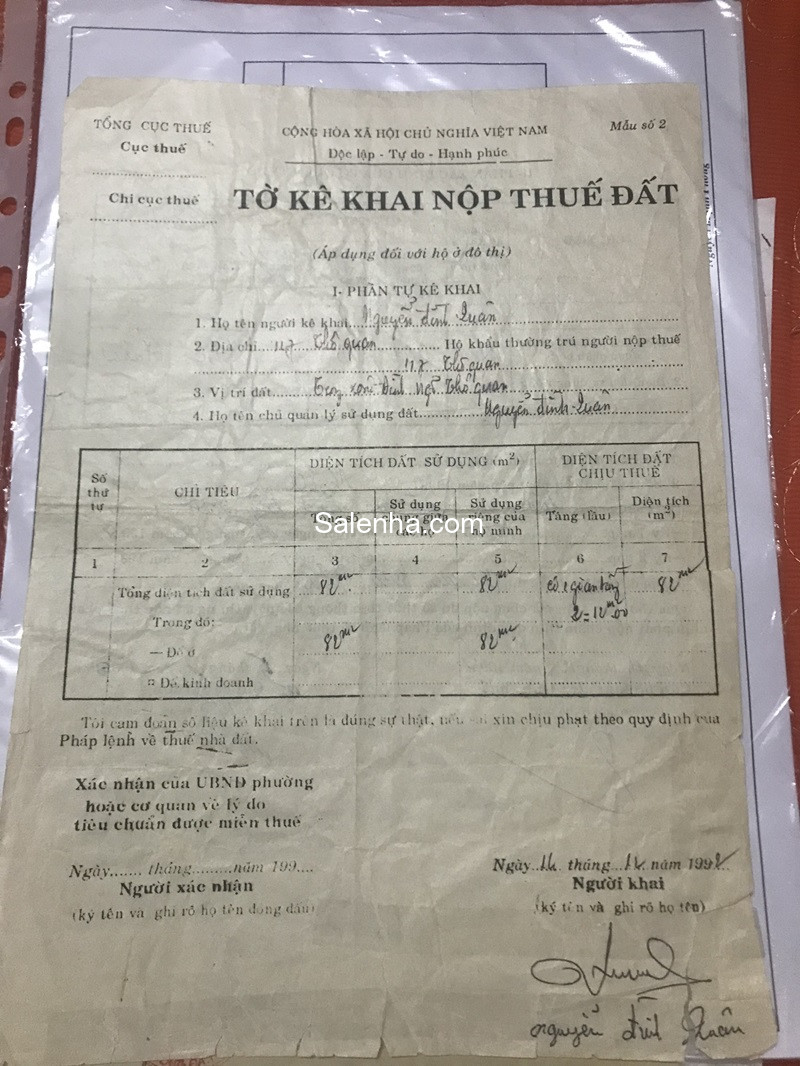 TỔNG CỤC THUẾ
Cục thuế
Chi cục thuế
CỘNG HÒA XÃ HỘI CHỦ NGHĨA VIỆT NAM
Độc lập - Tự do - Hạnh phúc
Mẫu số 2
TỜ KÊ KHAI NỘP THUẾ ĐẤT
(Áp dụng đối với hộ ở đô thị)
I- PHẦN TỰ KÊ KHAI
1. Họ tên người kê khai Nguyễn Đình Quân
2. Địa chỉ 117 Thổ quan Hộ khẩu thường trú người nộp thuế
117 Thổ quan
3. Vị trí đất Ngõ Thổ quan
4. Họ tên chủ quản lý sử dụng đất Nguyễn Đình Quân
Số thứ tự
CHỈ TIÊU
DIỆN TÍCH ĐẤT SỬ DỤNG (m²)
DIỆN TÍCH ĐẤT CHỊU THUẾ
Tổng số
Sử dụng chung giữa các hộ
Sử dụng riêng của hộ mình
Tầng (lầu)
Diện tích (m²)
1 2 3 4 5 6 7
Tổng diện tích đất sử dụng 82m² 82m² có 1 gian tầng 82m²
Trong đó: 2 = 12m²00
— Để ở 82m² 82m²
¤ Để kinh doanh
Salenha.com
Tôi cam đoan số liệu kê khai trên là đúng sự thật, nếu sai xin chịu phạt theo quy định của
Pháp lệnh về thuế nhà đất.
Xác nhận của UBND phường
hoặc cơ quan về lý do
tiêu chuẩn được miễn thuế
Ngày....... tháng.........năm 199....
Người xác nhận
(ký tên và ghi rõ họ tên đóng dấu)
Ngày tháng 12 năm 1992
Người khai
(ký tên và ghi rõ họ tên)
Nguyễn Đình Quân